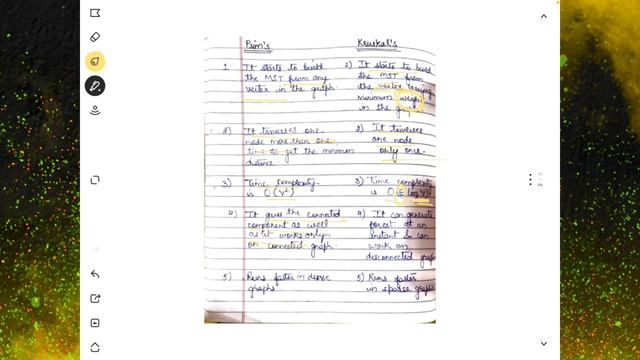 Prim's
Kruskal's
1. It starts to build
the MST from any
vertex in the graph.
1) It starts to build
the MST from
the vertex carrying
minimum weight
in the graph
2) It traverses one
node more than one
time to get the minimum
distance
2) It traverses
one node
only once
3) Time complexity
is O(V²)
3) Time complexity
is O(E log V)
4) It gives the connected
component as well
as it works only
on connected graph.
4) It can generate
forest at an
instant & can
work on
disconnected graph
5) Runs faster in dense
graphs
5) Runs faster
in sparse graphs
2 / 2